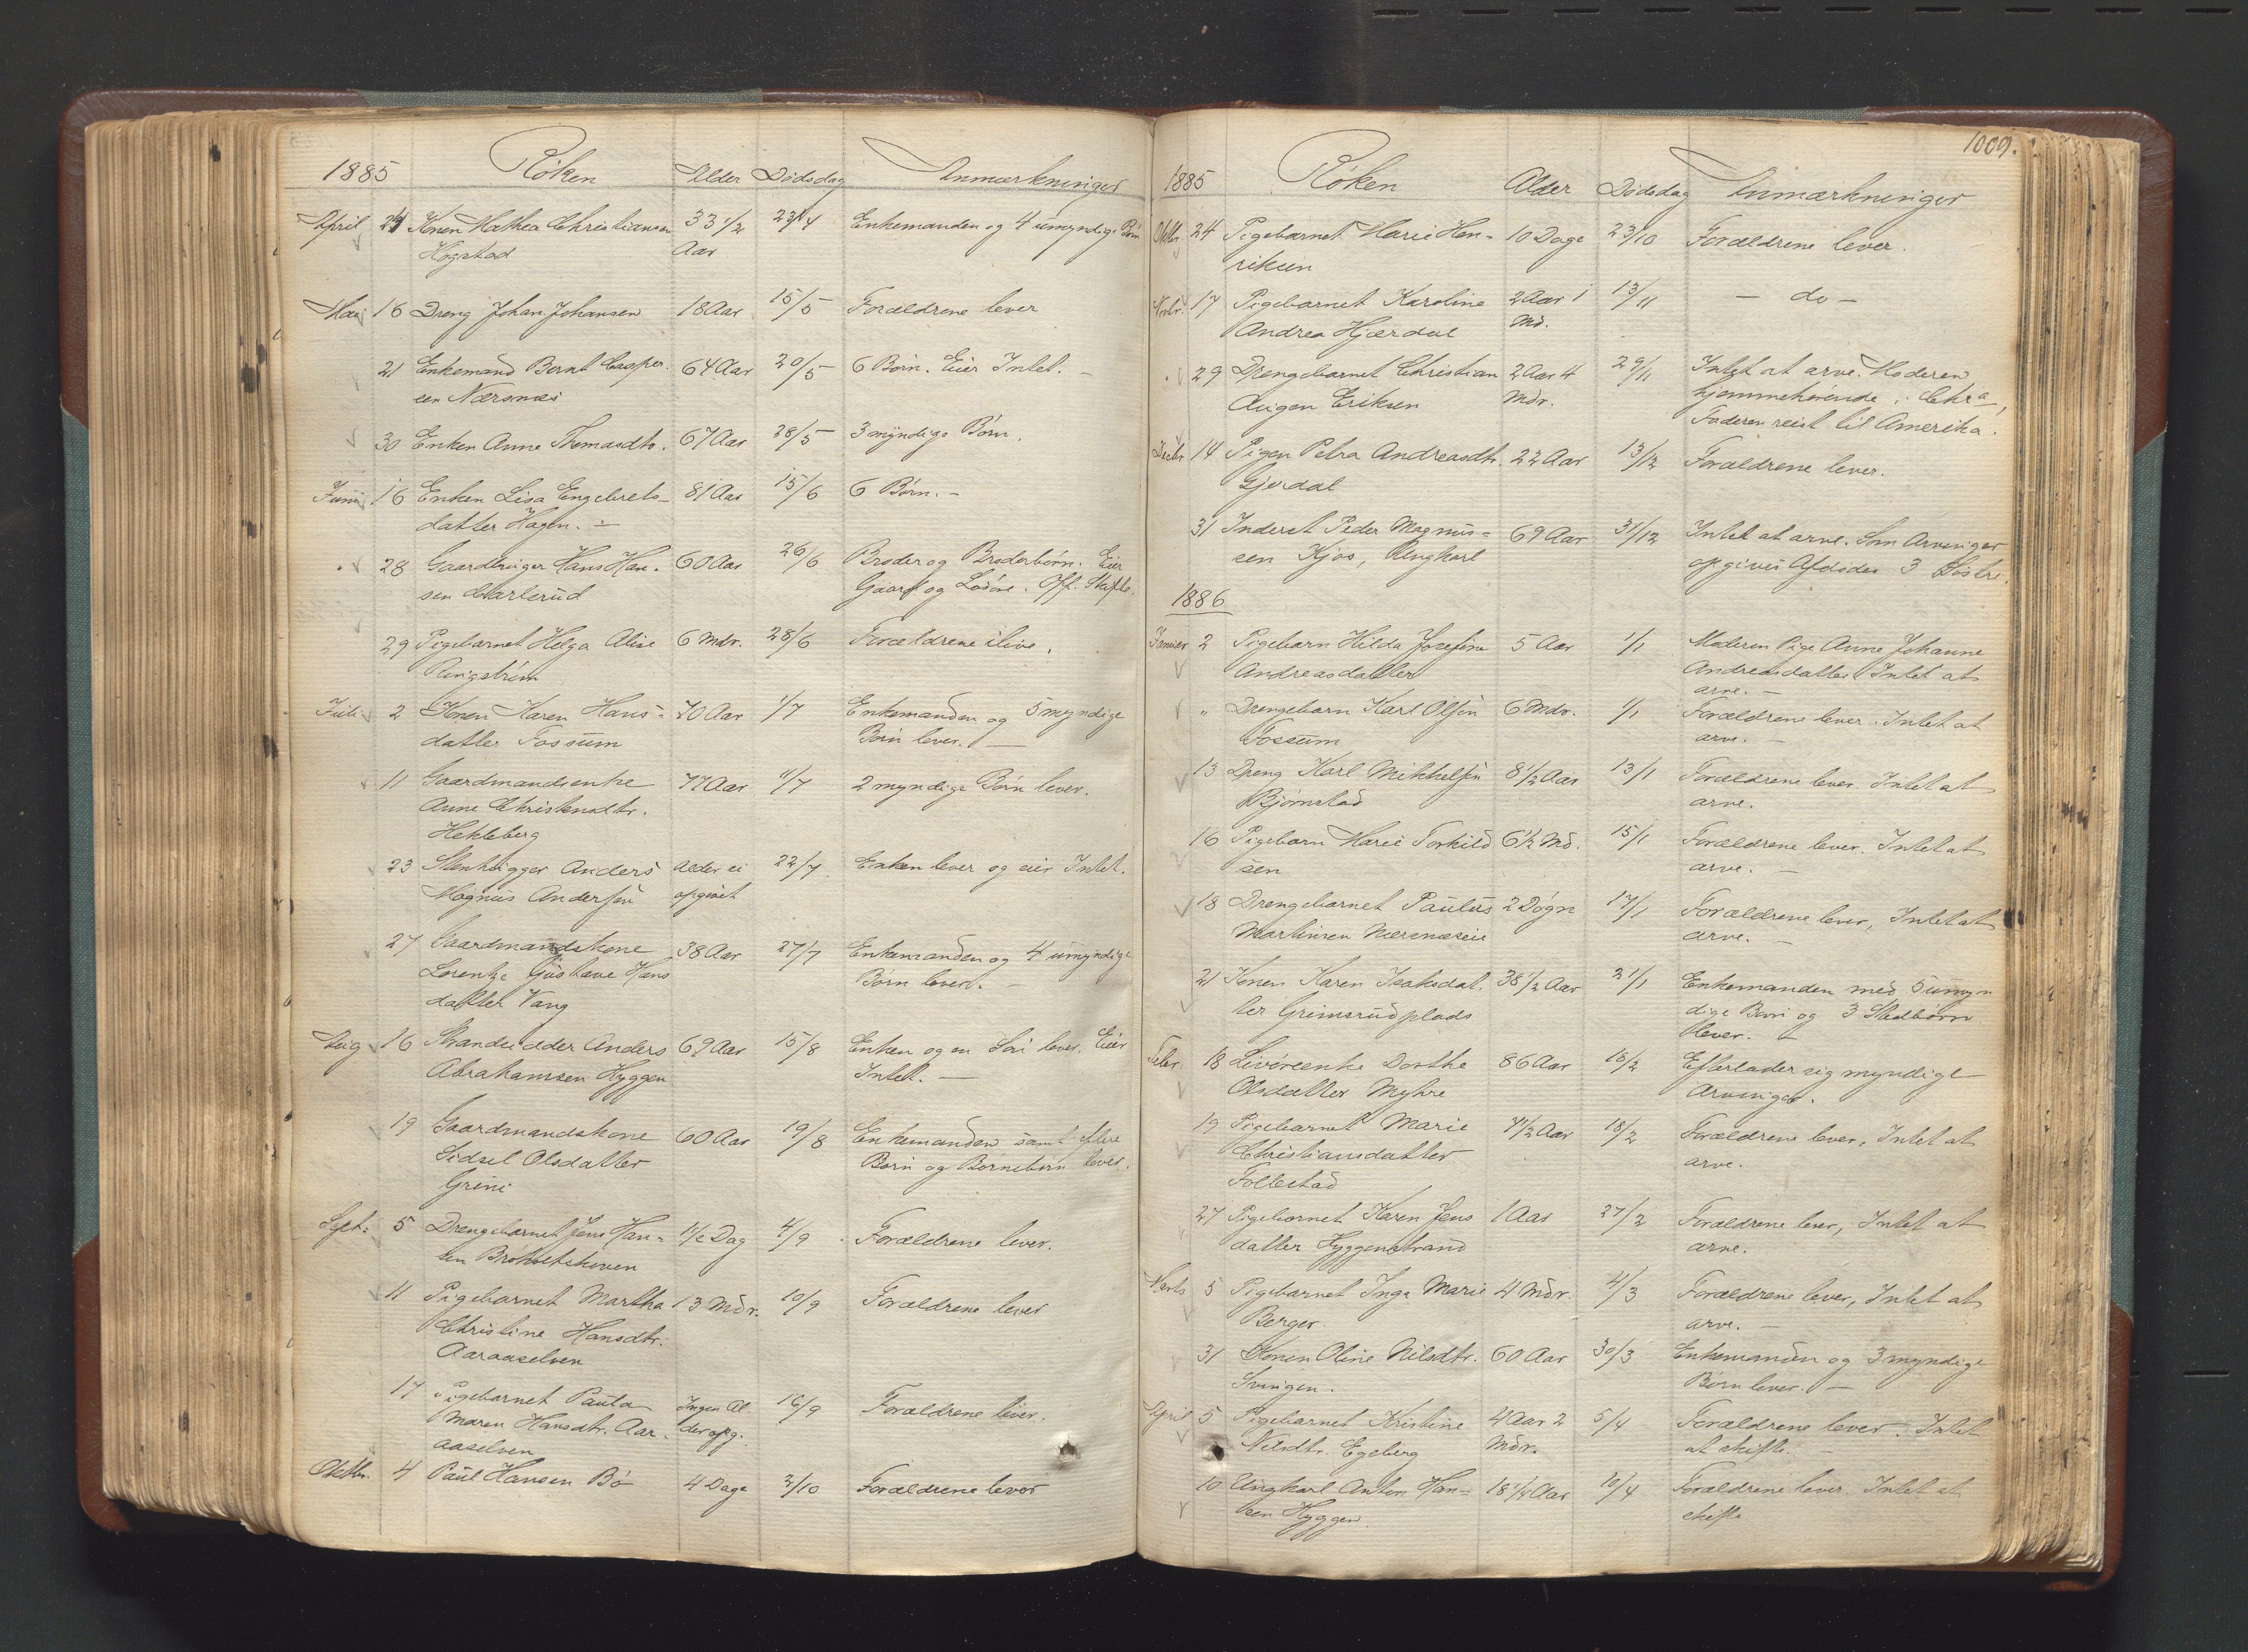 1885 Røken Alder Dødsdag Anmærkninger
April 24 Konen Mathea Christiansen 33 1/2 23/4 Enkemanden og 4 umyndige Børn
Hogstad Aar
Mai 16 Dreng Johan Johansen 18 Aar 15/5 Forældrene lever
21 Enkemand Bernt Casper- 64 Aar 20/5 6 Børn. Eier Intet. –
sen Nærsnæs
30 Enken Anne Thomasdtr. 67 Aar 28/5 3 myndige Børn.
Juni 16 Enken Lisa Engebrets- 81 Aar 15/6 6 Børn. –
datter Hagen. –
28 Gaardbruger Hans Han- 60 Aar 26/6 Broder og Broderbørn. Eier
sen Gaard og Løsøre. Off. Skifte.
29 Pigebarnet Helga Alise 6 Mdr. 28/6 Forældrene ilive.
Ringstrøm
Juli 2 Konen Karen Hans- 70 Aar 1/7 Enkemanden og 5 myndige
datter Fossum Børn lever. –
11 Gaardmandsenke 77 Aar 11/7 2 myndige Børn lever.
Anne Christensdtr.
Hekleberg
23 Stenhugger Anders Alder ei 22/7 Enken lever og eier Intet.
Magnus Andersen opgivet
27 Gaardmandskone 38 Aar 27/7 Enkemanden og 4 umyndige
Lorentze Gustava Hans Børn lever. –
datter Vang
Aug 16 Strandsidder Anders 69 Aar 15/8 Enken og en Søn lever. Eier
Abrahamsen Hyggen Intet. –
19 Gaardmandskone 60 Aar 19/8 Enkemanden samt flere
Sidsel Olsdatter Børn og Børnebørn lever.
Grini
Sept. 5 Drengebarnet Jens Han- 1 1/2 Dag 4/9 Forældrene lever.
sen
11 Pigebarnet Martha 13 Mdr. 10/9 Forældrene lever
Christine Hansdtr.
Aaraaselven
17 Pigebarnet Paula Ingen Al- 16/9 Forældrene lever.
Maren Hansdtr. Aar- der opg.
aaselven
Oktbr. 4 Paul Hansen Bø 4 Dage 2/10 Forældrene lever
1009.
1885 Røken Alder Dødsdag Anmærkninger
Oktbr. 24 Pigebarnet Marie Hen- 10 Dage 23/10 Forældrene lever.
riksen
Novbr. 17 Pigebarnet Karoline 2 Aar 1 13/11 – do –
Andrea Hjærdal Md.
29 Drengebarnet Christian 2 Aar 4 29/11 Intet at arve. Moderen
Eriksen Mdr. hjemmehørende i Chra,
Faderen reist til Amerika.
Decbr. 14 Pigen Petra Andreasdtr. 22 Aar 13/12 Forældrene lever.
Gjerdal
31 Inderst Peder Magnus- 69 Aar 31/12 Intet at arve. Som Arvinger
sen Kjos, Ungkarl opgives Afdødes 3 Søstre.
1886
Januar 2 Pigebarn Hilda Josefine 5 Aar 1/1 Moderen Pige Anne Johanne
Andreasdatter Andreasdatter Intet at
arve. –
" Drengebarn Karl Olsen 6 Mdr. 1/1 Forældrene lever. Intet at
Fossum arve. –
13 Dreng Karl Mikkelsen 8 1/2 Aar 13/1 Forældrene lever. Intet at
Bjørnstad arve.
16 Pigebarn Marie Torkild 6 1/2 Md. 15/1 Forældrene lever. Intet at
sen arve. –
18 Drengebarnet Paulus 2 Døgn 17/1 Forældrene lever, Intet at
Martinsen Nærsnæseie arve. –
21 Konen Karen Isaksdat- 38 1/2 Aar 21/1 Enkemanden med 5 umyn
ter Grimsrudplads dige Børn og 3 Stedbørn
lever. –
Febr. 18 Livøreenke Dorthe 86 Aar 18/2 Efterlader sig myndige
Olsdatter Myhre Arvinger.
19 Pigebarnet Marie 4 1/2 Aar 18/2 Forældrene lever, Intet at
Christiansdatter arve.
Follestad
27 Pigebarnet Karen Jens 1 Aar 27/2 Forældrene lever, Intet at
datter Hyggenstrand arve.
Marts 5 Pigebarnet Inga Marie 4 Mdr. 4/3 Forældrene lever, Intet at
Berger. arve. –
31 Konen Oline Nilsdtr. 60 Aar 30/3 Enkemanden og 3 myndige
Svingen. Børn lever. –
April 5 Pigebarnet Kristine 4 Aar 2 5/4 Forældrene lever. Intet
Nilsdtr. Egeberg Mdr. at skifte.
10 Ungkarl Anton Han- 18 1/4 Aar 10/4 Forældrene lever. Intet at
sen Hyggen skifte